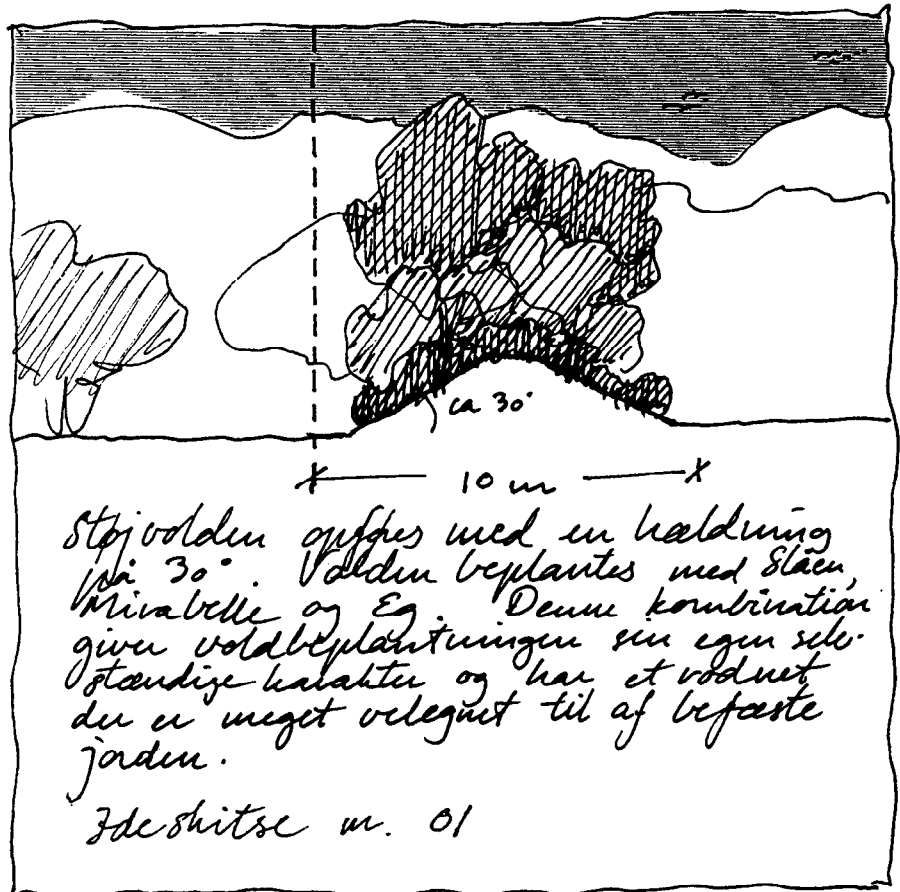 ca 30°
10 m
Støjvolden opføres med en hældning
på 30°. Volden beplantes med Slåen,
Mirabelle og Eg. Denne kombination
giver voldbeplantningen sin egen selv-
stændige karakter og har et rodnet
der er meget velegnet til af befæste
jorden.
Ideskitse nr. 01